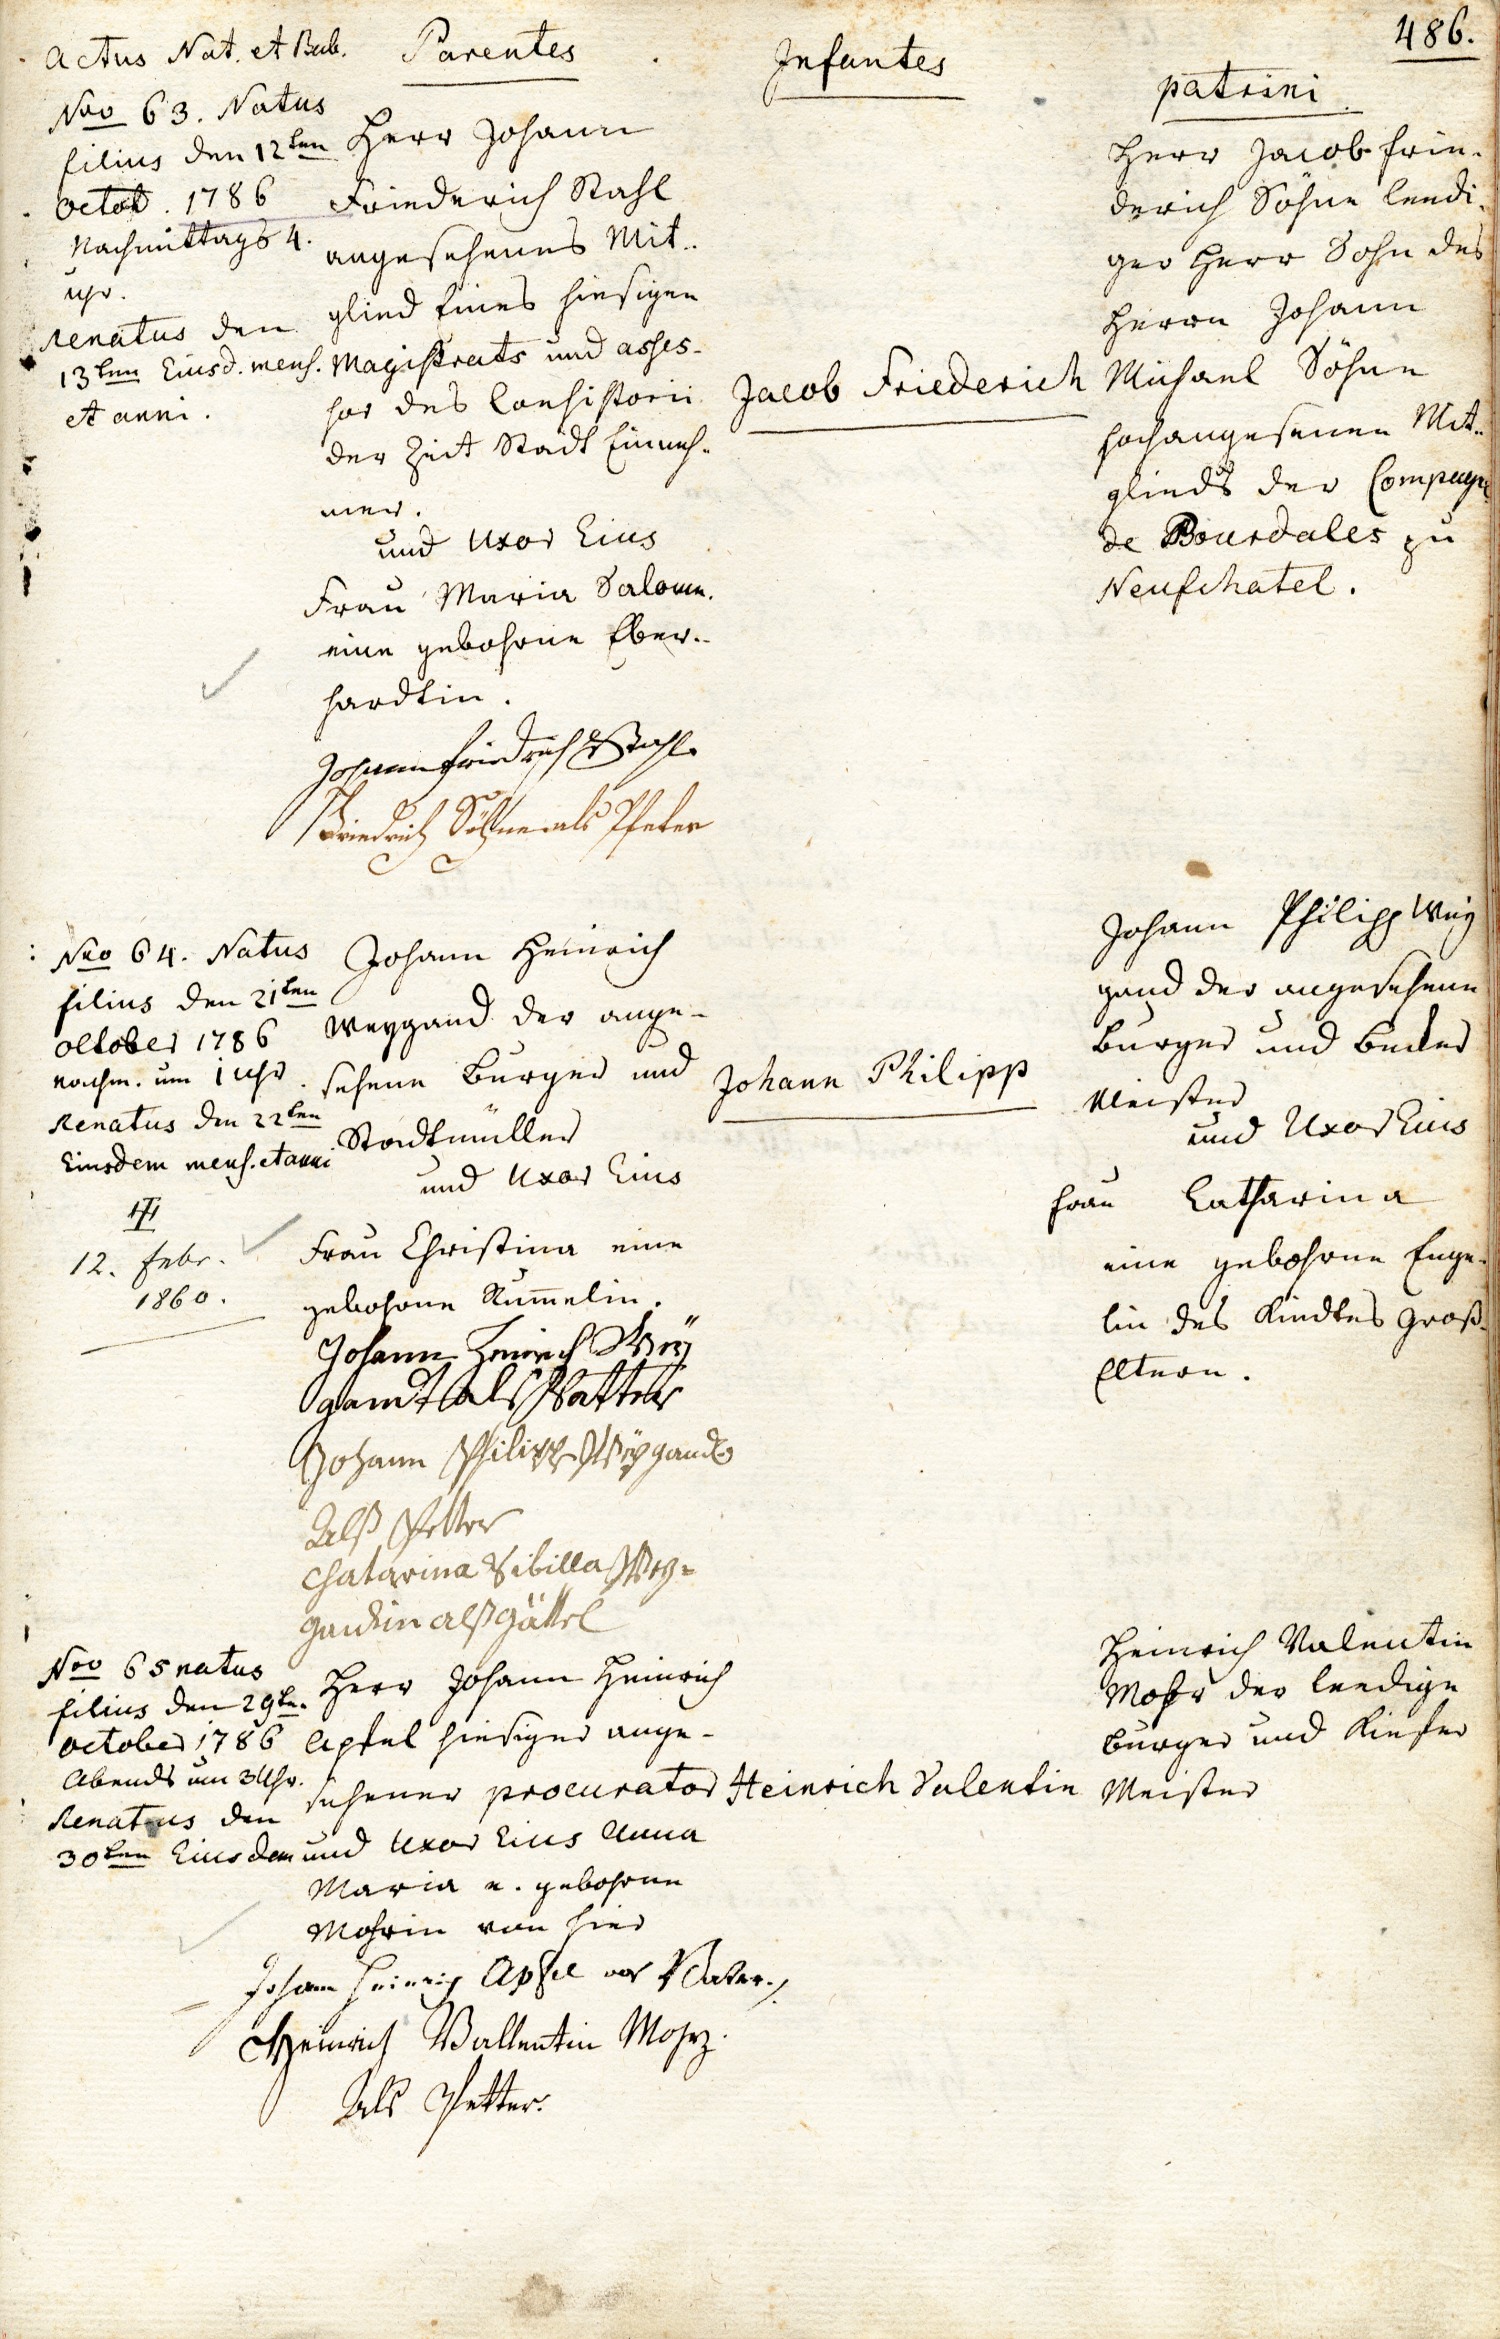 486.
Actus Nat. et Bab.
Parentes
Infantes
patrini
Nro 63. Natus
filius den 12ten
octob. 1786
Nachmittags 4.
uhr.
Renatus den
13ten Eiusd. mens.
et anni.
Herr Johann
Friederich Stahl
angesehenes Mit-
glied Eines hiesigen
Magistrats und asses-
sor des Consistorii
der Zeit Stadt Einneh-
mer.
und Uxor Eius
Frau Maria Salome.
eine gebohrne Eber-
hardtin.
Johann Friedrich Stahl
Friedrich Söhne als Pfeter
Jacob Friederich
Herr Jacob Frie-
derich Söhne leedi-
ger Herr Sohn des
Herrn Johann
Michael Söhne
hochangesenen Mit-
glieds der Compagn
de Bourdales zu
Neufchatel.
Nro 64. Natus
filius den 21ten
october 1786
nachm. um 1 uhr.
Renatus den 22ten
Eiusdem mens. et anni
12. Febr.
1860.
Johann Heinrich
Weygand der ange-
sehene Burger und
Stadtmüller
und Uxor Eius
Frau Christina eine
gebohrne Rum̅elin.
Johann Heinrich Wey
gandt als Vatter
Johann Philipp Weygand
Alß Petter
Chatarina Sibilla Wey-
gandin alß Gättel
Johann Philipp
Johann Philipp Wey
gand der angesehene
Burger und Becker
Meister
und Uxor Eius
Frau Catharina
eine gebohrne Enge-
lin des Kindtes Groß-
Eltern.
Nro 65 natus
filius den 29te.
october 1786
Abends um 3 Uhr.
Renatus den
30ten Eiusdem
Herr Johann Heinrich
Apfel hiesiger ange-
sehener procurator
und Uxor Eius Anna
Maria e. gebohrne
Mohrin von hier
Johann Heinrig Apfel als Vater.
Heinrich Vallentin Mohr.
Als Petter.
Heinrich Valentin
Heinrich Valentin
Mohr der leedige
Burger und Kiefer
Meister